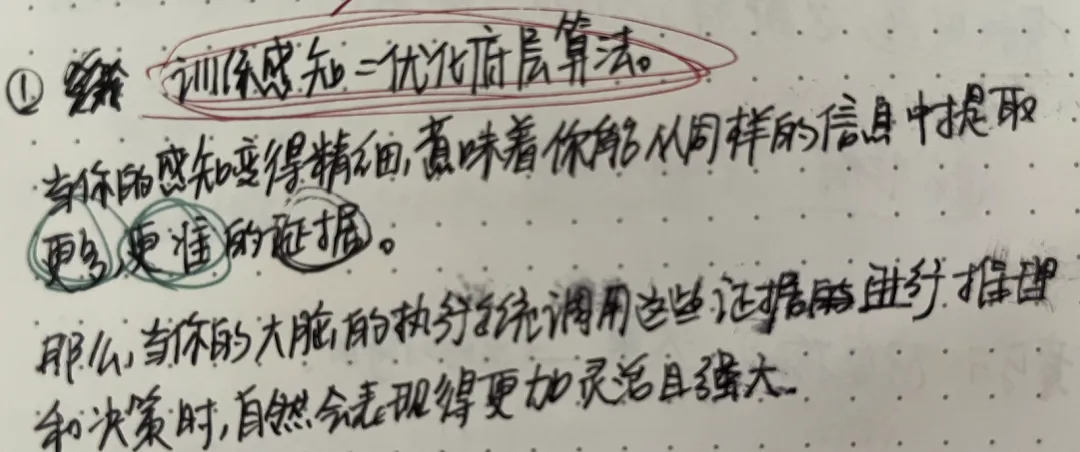 ① 训练感知=优化底层算法。
当你的感知变得精细,意味着你能从同样的信息中提取
更多,更准的证据。
那么,当你的大脑的执行系统调用这些证据进行推理
和决策时,自然会表现得更加灵活且强大。